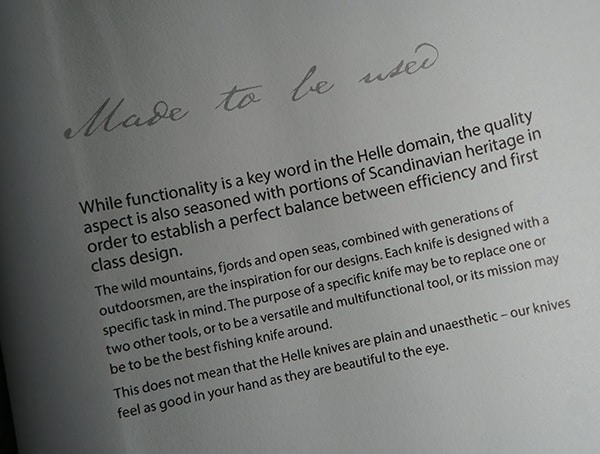 Made to be used
While functionality is a key word in the Helle domain, the quality
aspect is also seasoned with portions of Scandinavian heritage in
order to establish a perfect balance between efficiency and first
class design.
The wild mountains, fjords and open seas, combined with generations of
outdoorsmen, are the inspiration for our designs. Each knife is designed with a
specific task in mind. The purpose of a specific knife may be to replace one or
two other tools, or to be a versatile and multifunctional tool, or its mission may
be to be the best fishing knife around.
This does not mean that the Helle knives are plain and unaesthetic – our knives
feel as good in your hand as they are beautiful to the eye.